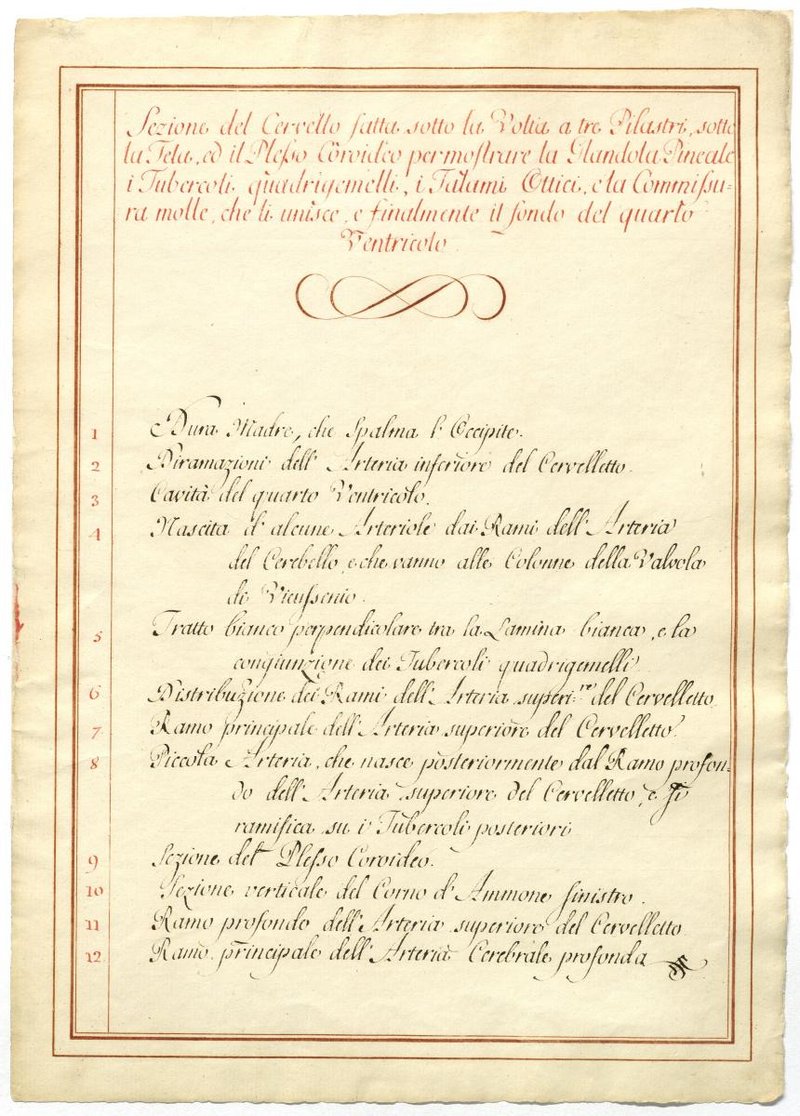 Sezione del Cervello fatta sotto la Volta a tre Pilastri, sotto
la Tela, ed il Plesso Coroideo per mostrare la Glandola Pineale
i Tubercoli quadrigemelli, i Talami Ottici, e la Commissu=
ra molle, che li unisce, e finalmente il fondo del quarto
Ventricolo.
1 Dura Madre, che Spalma l'Occipite.
2 Diramazioni dell'Arteria inferiore del Cervelletto.
3 Cavità del quarto Ventricolo.
4 Nascita d'alcune Arteriole dai Rami dell'Arteria
del Cerebello, e che vanno alle Colonne della Valvola
di Vieussenio.
5 Tratto bianco perpendicolare tra la Lamina bianca, e la
congiunzione dei Tubercoli quadrigemelli
6 Distribuzione dei Rami dell'Arteria superi.re del Cervelletto.
7 Ramo principale dell'Arteria superiore del Cervelletto.
8 Piccola Arteria, che nasce posteriormente dal Ramo profon=
do dell'Arteria superiore del Cervelletto, e si
ramifica su i Tubercoli posteriori
9 Sezione del Plesso Coroideo.
10 Sezione verticale del Corno d'Ammone sinistro.
11 Ramo profondo dell'Arteria superiore del Cervelletto
12 Ramo principale dell'Arteria Cerebrale profonda